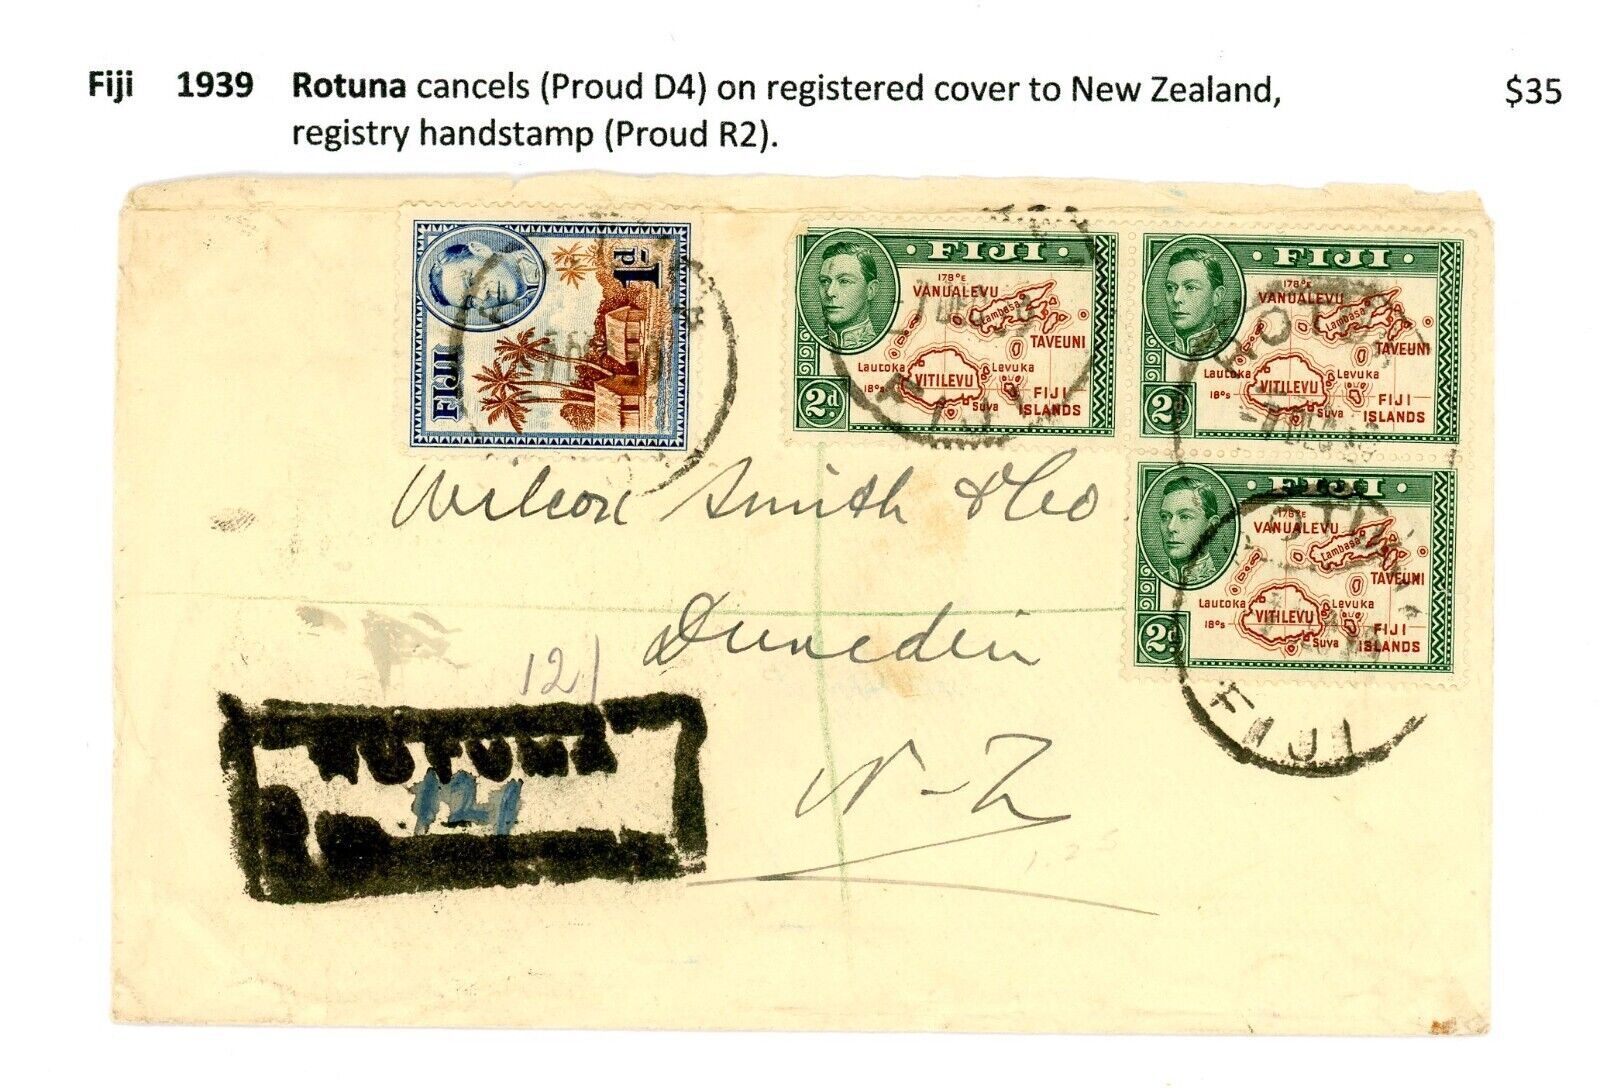 Fiji 1939 Rotuna cancels (Proud D4) on registered cover to New Zealand, $35
registry handstamp (Proud R2).
FIJI
1d
· FIJI ·
178°E
VANUALEVU
Lambasa
TAVEUNI
Lautoka
Levuka
VITILEVU
18°S
Suva
FIJI
ISLANDS
2d
FIJI
· FIJI ·
178°E
VANUALEVU
Lambasa
TAVEUNI
Lautoka
Levuka
VITILEVU
18°S
Suva
FIJI
ISLANDS
2d
· FIJI ·
178°E
VANUALEVU
Lambasa
TAVEUNI
Lautoka
Levuka
VITILEVU
18°S
Suva
FIJI
ISLANDS
2d
FIJI
Wilcox Smith & Co
Dunedin
N-Z
121
ROTUMA
121
1.25